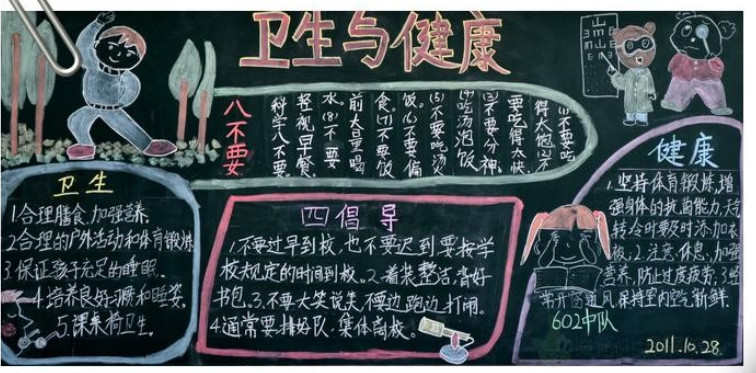 卫生与健康
八不要
(1)不要吃
得太饱(2)不
要吃得太快
(3)不要分神
(4)吃汤泡饭
(5)不要吃烫
饭。(6)不要偏
食(7)不要饭
前大量喝
水。(8)不要
轻视早餐
科学八不要
卫生
1合理膳食,加强营养
2合理的户外活动和体育锻炼
3保证孩子充足的睡眠.
4培养良好习惯和睡姿
5.课桌椅卫生。
四倡导
1.不要过早到校,也不要迟到要按学
校规定的时间到校。2.着装整洁,背好
书包。3.不要大笑说笑不要边跑边打闹。
4通常要排好队,集体离校。
健康
1.坚持体育锻炼,增
强身体的抗菌能力,天气
转冷时要及时添加衣
服,2.注意休息,加强
营养,防止过度疲劳;3经
常开窗通风,保持室内空气新鲜.
602中队
2011.10.28.